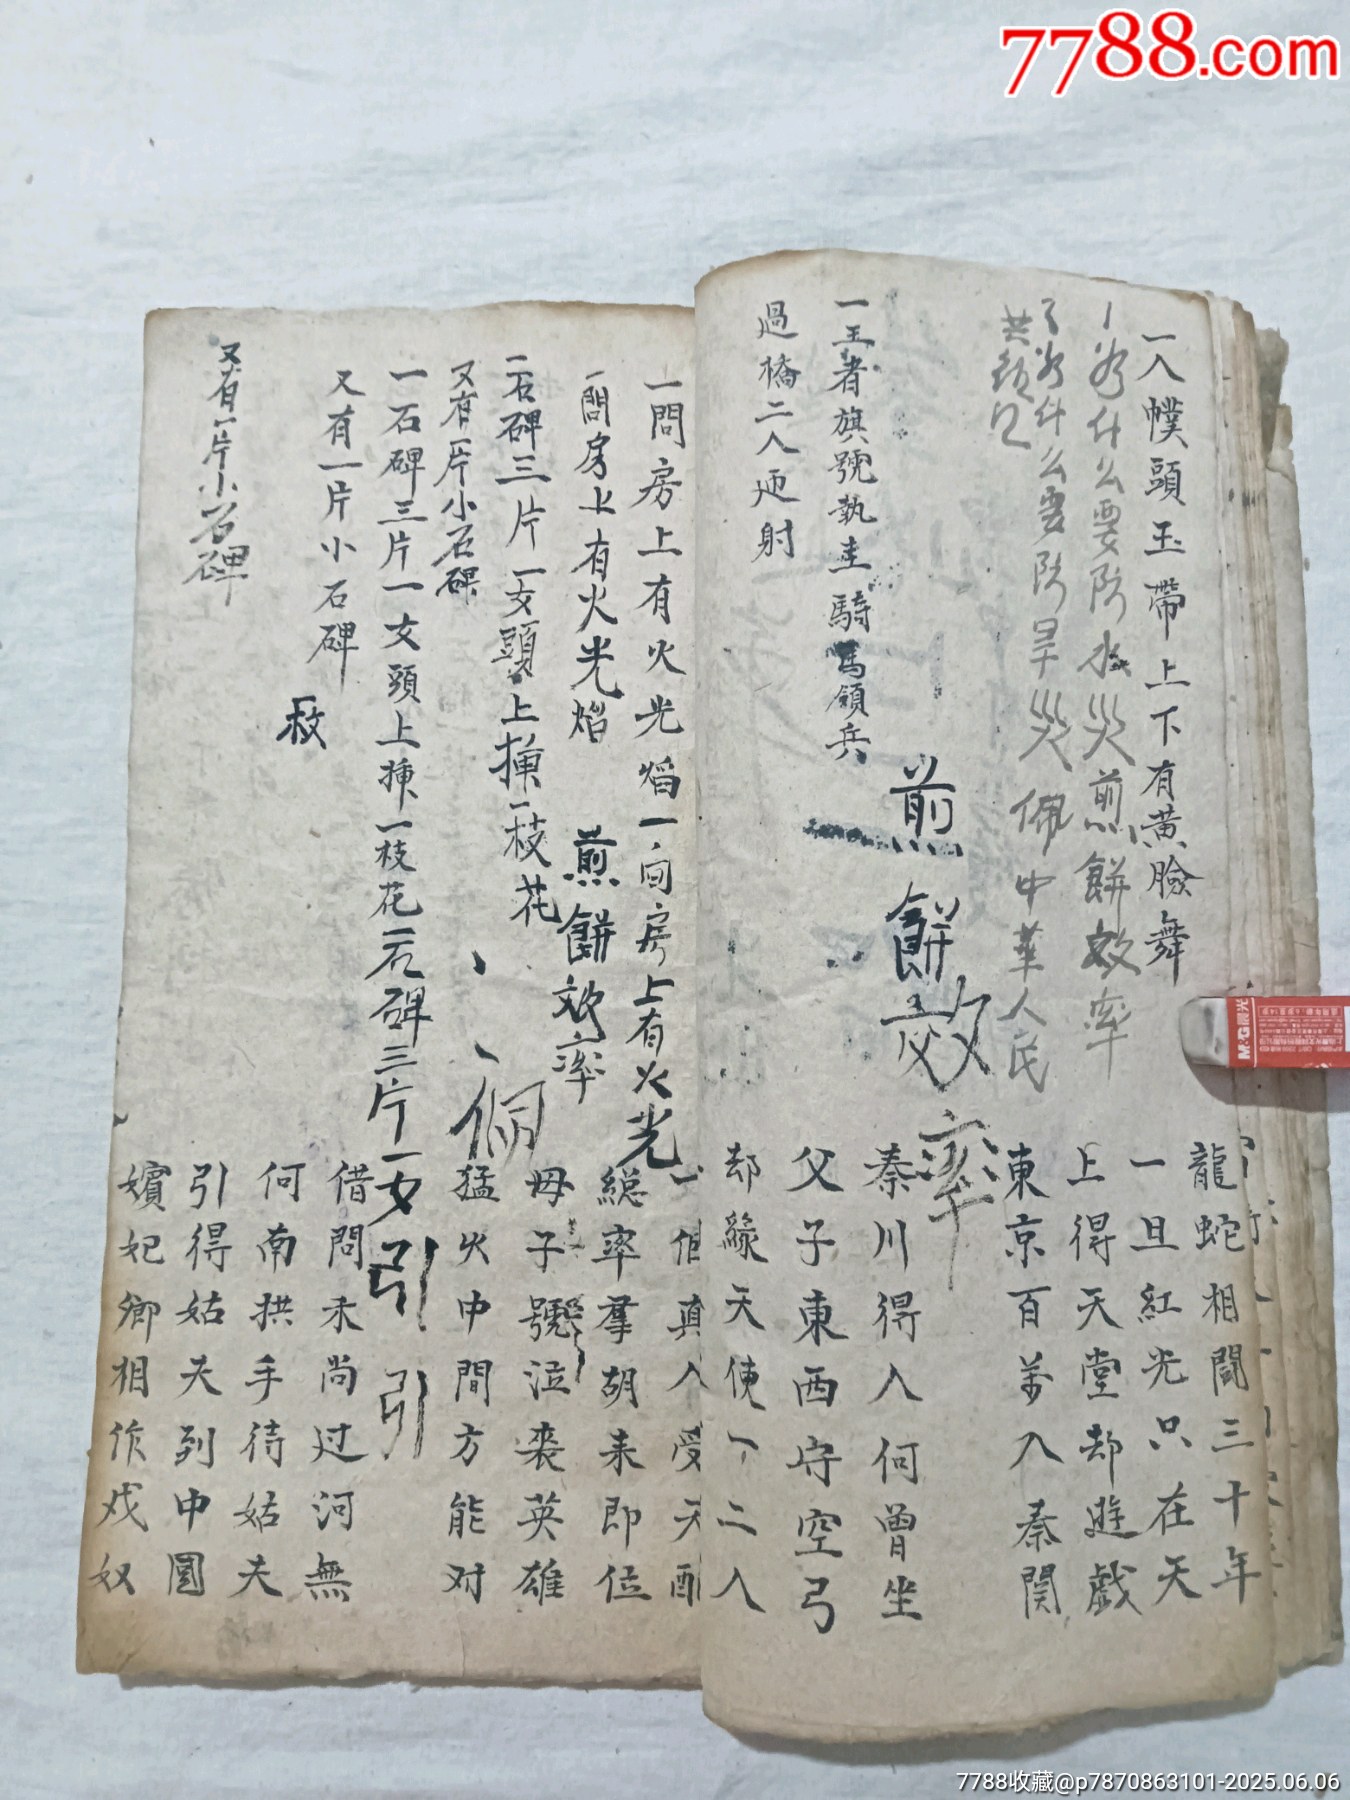 7788.com
一人幞頭玉帶上下有黄臉舞
为什么要防水災煎餅效率
为什么要防旱災佩中華人民
共
煎餅效率
一王者旗號執圭騎馬領兵
過橋二人迎射
龍蛇相鬪三十年
一旦紅光只在天
上得天堂却遊戲
東京百萬入秦関
秦川得入何曾坐
父子東西守空弓
却綠天使下二人
一問房上有火光焰一间房上有火光
一問房上有火光焰
煎餅效率
一石碑三片一女頭上揷一枝花
又有一片小石碑
一石碑三片一女頭上揷一枝花一石碑三片一女引引
又有一片小石碑
一枚
又有一片小石碑
真人受天
總率羣胡来即位
母子號泣喪英雄
猛火中間方能对
借問未尚过河無
何南拱手待姑夫
引得姑夫到中國
嬪妃鄉相作戏奴
M&G晨光
7788收藏@p7870863101-2025.06.06